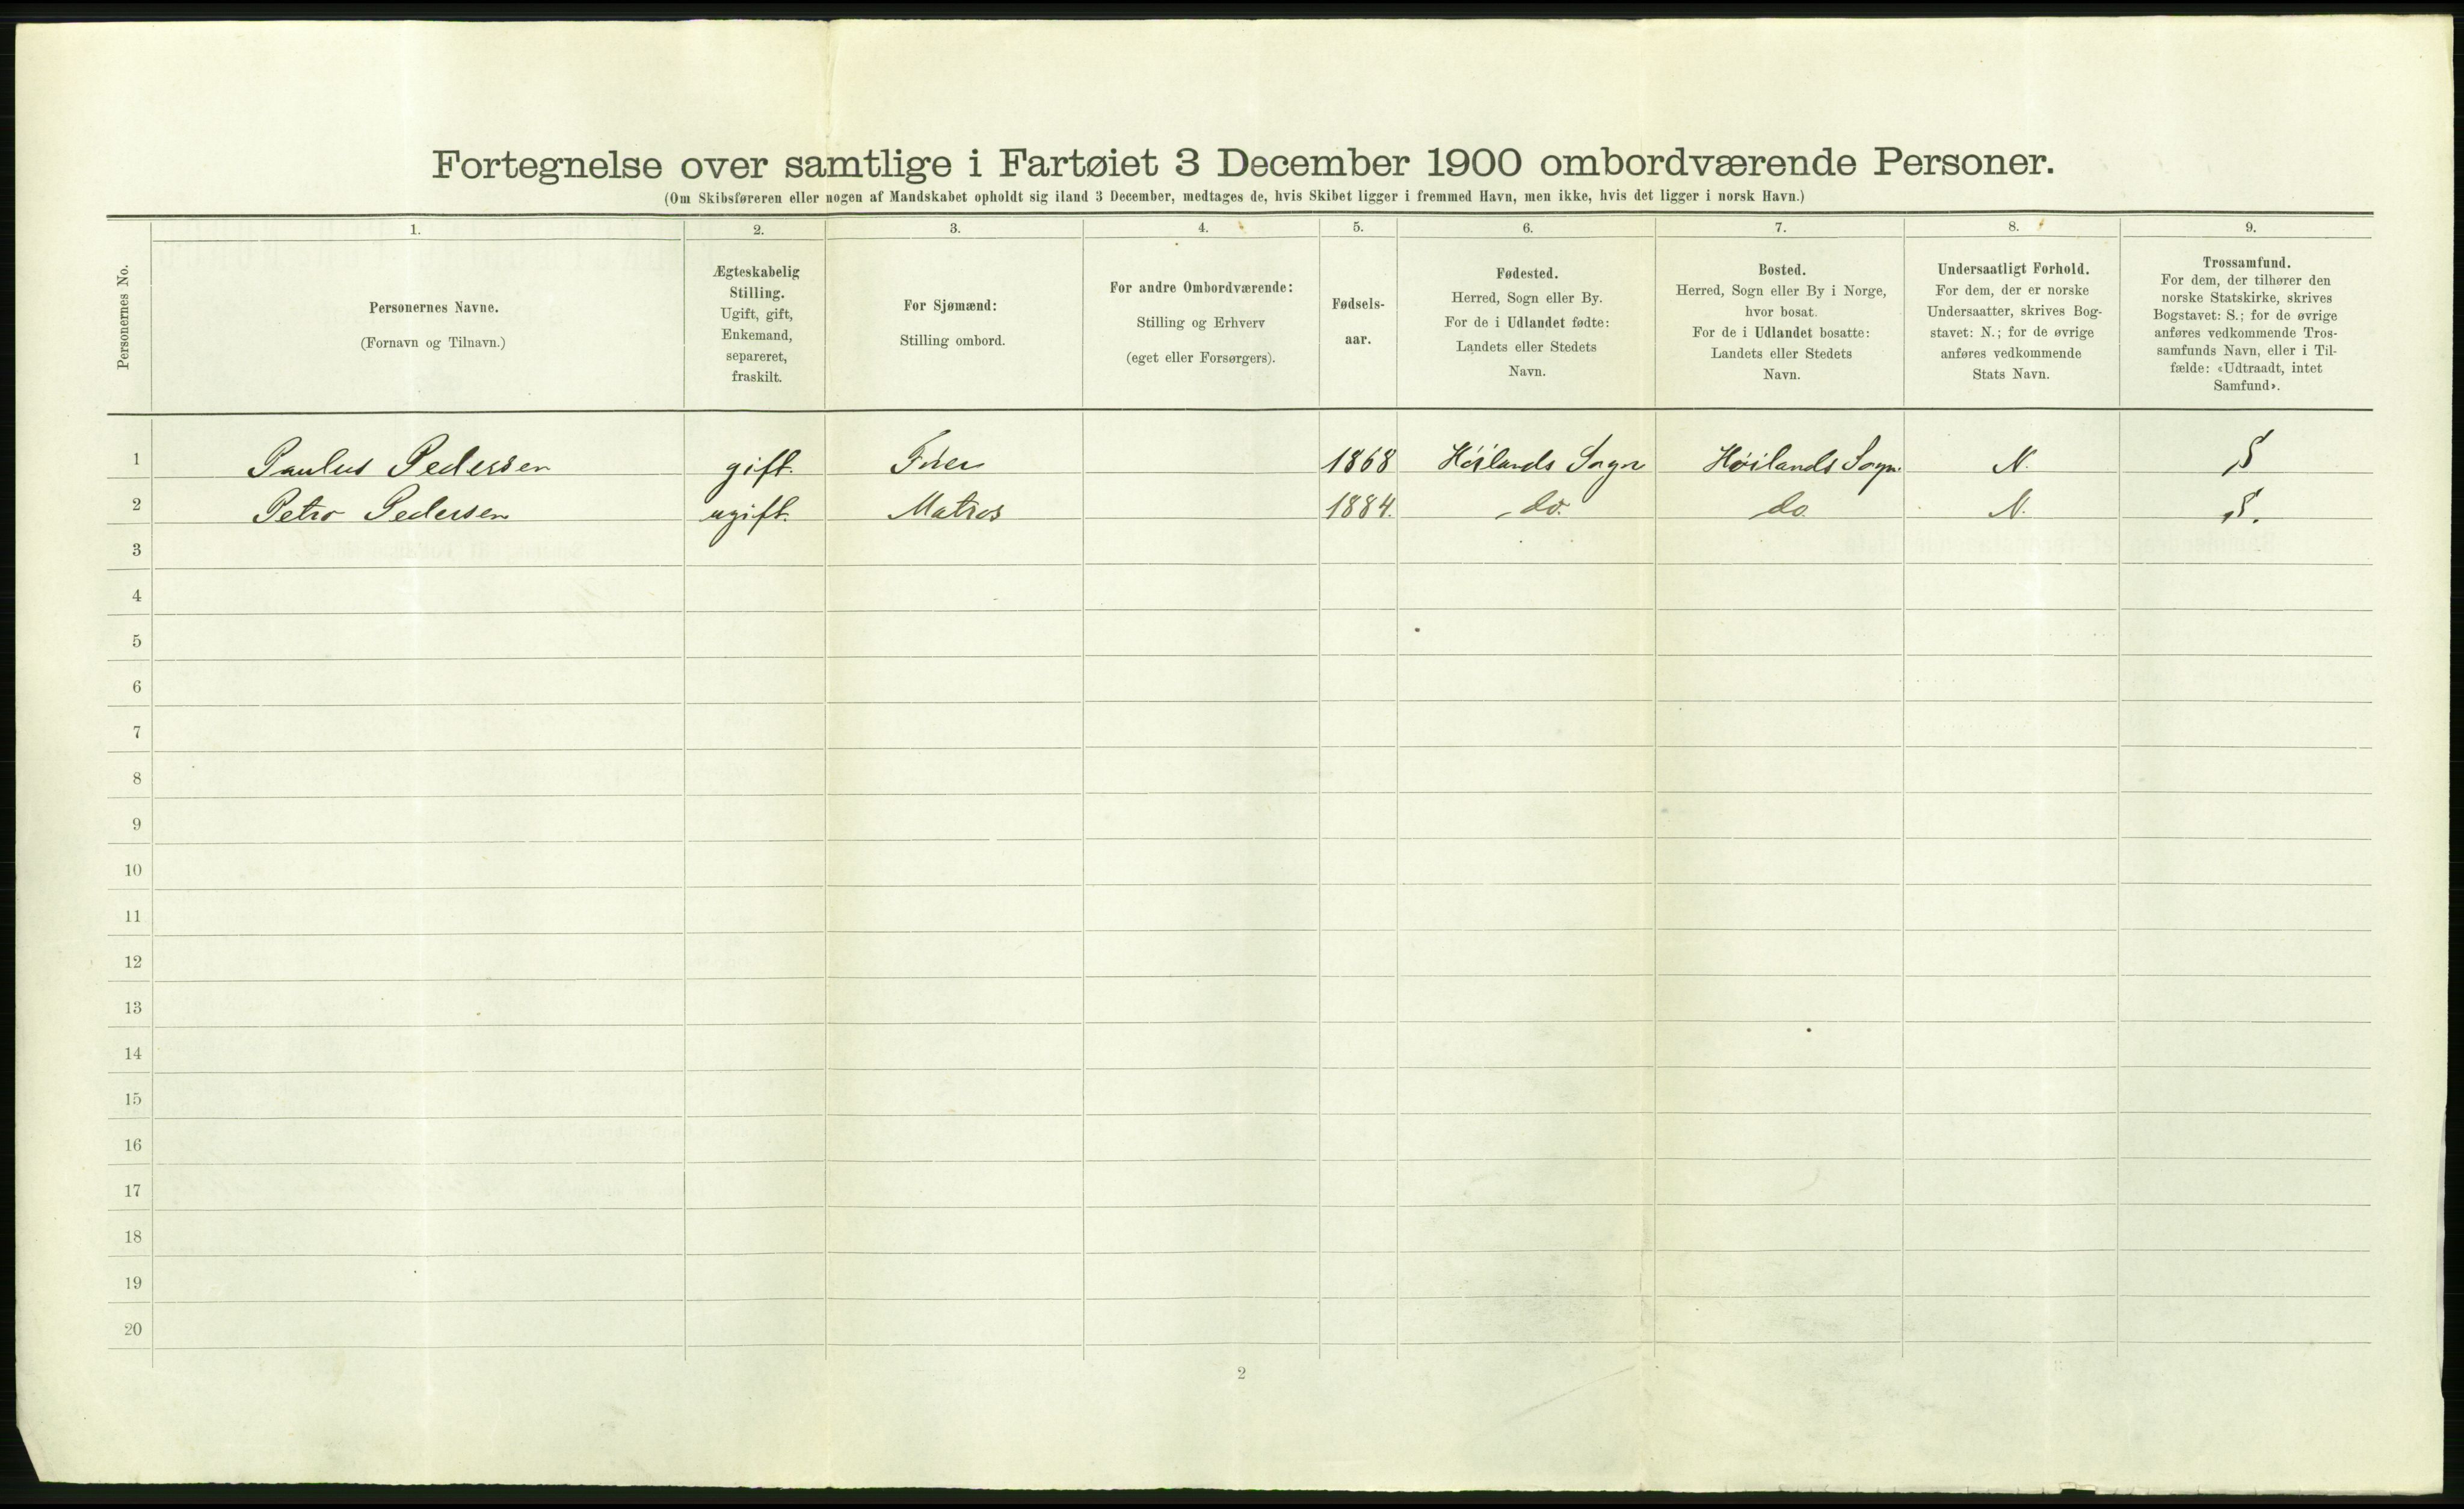 Fortegnelse over samtlige i Fartøiet 3 December 1900 ombordværende Personer.
(Om Skibsføreren eller nogen af Mandskabet opholdt sig iland 3 December, medtages de, hvis Skibet ligger i fremmed Havn, men ikke, hvis det ligger i norsk Havn.)
Personernes No.
1.
Personernes Navne.
(Fornavn og Tilnavn.)
2.
Ægteskabelig
Stilling.
Ugift, gift,
Enkemand,
separeret,
fraskilt.
3.
For Sjømænd:
Stilling ombord.
4.
For andre Ombordværende:
Stilling og Erhverv
(eget eller Forsørgers).
5.
Fødsels-
aar.
6.
Fødested.
Herred, Sogn eller By.
For de i Udlandet fødte:
Landets eller Stedets
Navn.
7.
Bosted.
Herred, Sogn eller By i Norge,
hvor bosat.
For de i Udlandet bosatte:
Landets eller Stedets
Navn.
8.
Undersaatligt Forhold.
For dem, der er norske
Undersaatter, skrives Bog-
stavet: N.; for de øvrige
anføres vedkommende
Stats Navn.
9.
Trossamfund.
For dem, der tilhører den
norske Statskirke, skrives
Bogstavet: S.; for de øvrige
anføres vedkommende Tros-
samfunds Navn, eller i Til-
fælde: «Udtraadt, intet
Samfund».
1 Paulus Pedersen gift. Fører 1868 Höilands Sogn Höilands Sogn. N. S
2 Petro Pedersen ugift. Matros 1884. do. do N. S.
3
4
5
6
7
8
9
10
11
12
13
14
15
16
17
18
19
20
2